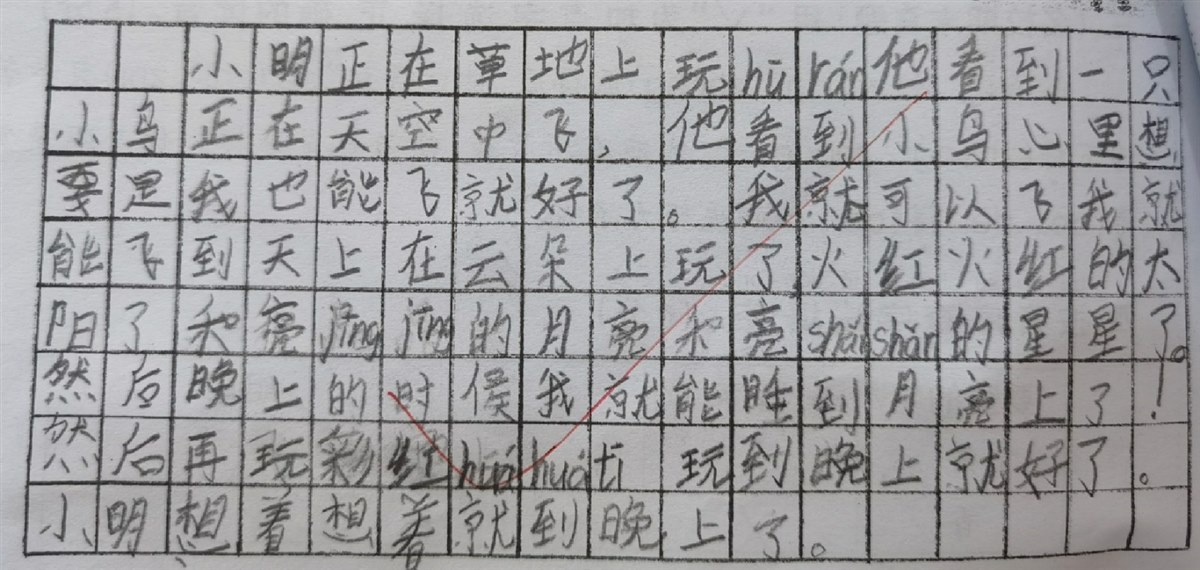 小明正在草地上玩hū rán他看到一只
小鸟正在天空中飞,他看到小鸟心里想
要是我也能飞就好了。我就可以飞我就
能飞到天上在云朵上玩了火红火红的太
阳了和亮jīng jīng的月亮和亮shǎn shǎn的星星了。
然后晚上的时侯我就能睡到月亮上了!
然后再玩彩红huá huá tī玩到晚上就好了。
小明想着想着就到晚上了。